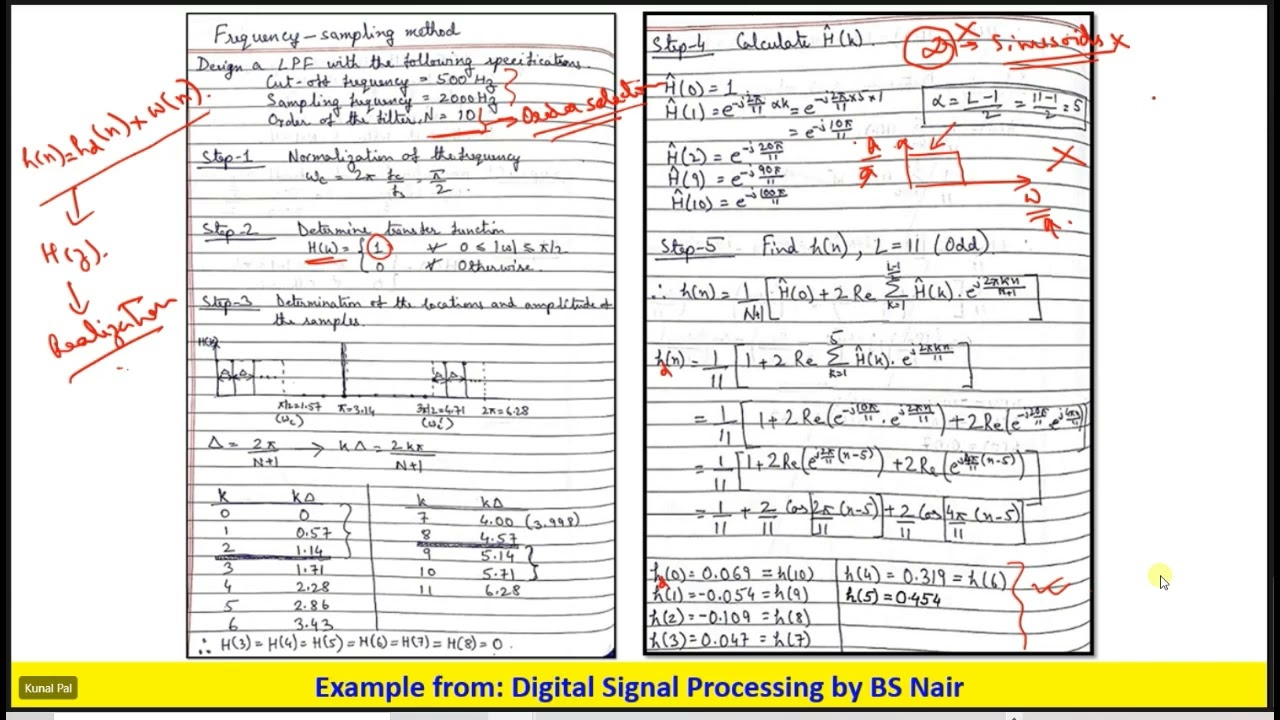 Frequency-sampling method
Design a LPF with the following specifications.
Cut-off frequency = 500 Hz
Sampling frequency = 2000 Hz
Order of the filter, N = 10
→ Order selection
h(n)=hd(n)×w(n).
H(z).
Realization
Step-1 Normalization of the frequency
ωc = 2π fc/fs = π/2
Step-2 Determine transfer function
H(ω) = { 1 ∀ 0 ≤ |ω| ≤ π/2
0 ∀ Otherwise.
Step-3 Determination of the locations and amplitude of
the samples.
π/2=1.57 π=3.14 3π/2=4.71 2π=6.28
(ωc) (ωc')
Δ = 2π/N+1 → kΔ = 2kπ/N+1
k kΔ k kΔ
0 0 7 4.00 (3.998)
1 0.57 8 4.57
2 1.14 9 5.14
3 1.71 10 5.71
4 2.28 11 6.28
5 2.86
6 3.43
∴ H(3) = H(4) = H(5) = H(6) = H(7) = H(8) = 0.
Step-4 Calculate Ĥ(k).
→ Sinusoids
Ĥ(0) = 1
Ĥ(1) = e^-j2π/11 αk = e^-j2π/11×5×1
α = L-1/2 = 11-1/2 = 5
= e^-j10π/11
Ĥ(2) = e^-j20π/11
Ĥ(9) = e^-j90π/11
Ĥ(10) = e^-j100π/11
Step-5 Find h(n), L = 11 (Odd)
∴ h(n) = 1/N+1 [Ĥ(0) + 2 Re Σ Ĥ(k). e^j2πkn/n+1]
hd(n) = 1/11 [1 + 2 Re Σ Ĥ(k). e^j2πkn/11]
= 1/11 [1 + 2 Re(e^-j10π/11 . e^j2πn/11) + 2 Re(e^-j20π/11 e^j4πn/11)]
= 1/11 [1 + 2 Re(e^j2π/11 (n-5)) + 2 Re(e^j4π/11 (n-5))]
= 1/11 + 2/11 Cos[2π/11 (n-5)] + 2/11 cos[4π/11 (n-5)]
hd(0) = 0.069 = h(10) h(4) = 0.319 = h(6)
h(1) = -0.054 = h(9) h(5) = 0.454
h(2) = -0.109 = h(8)
h(3) = 0.047 = h(7)
Kunal Pal
Example from: Digital Signal Processing by BS Nair